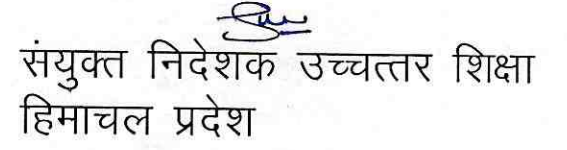 संयुक्त निदेशक उच्चत्तर शिक्षा
हिमाचल प्रदेश